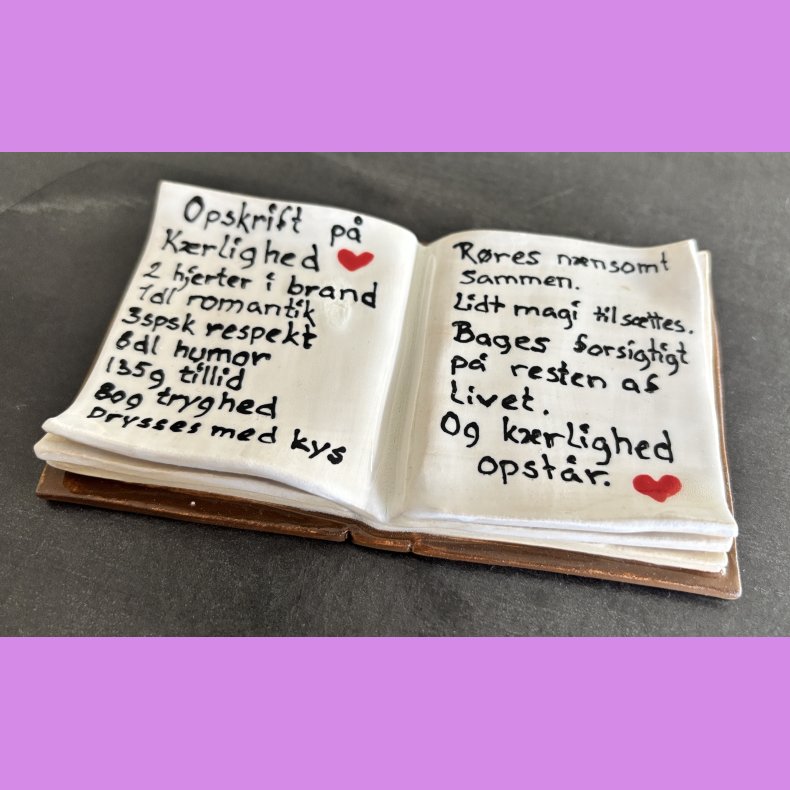 Opskrift på
Kærlighed
2 hjerter i brand
1dl romantik
3spsk respekt
6dl humor
135g tillid
80g tryghed
Drysses med kys
Røres nænsomt
sammen.
Lidt magi tilsættes.
Bages forsigtigt
på resten af
livet.
Og kærlighed
opstår.